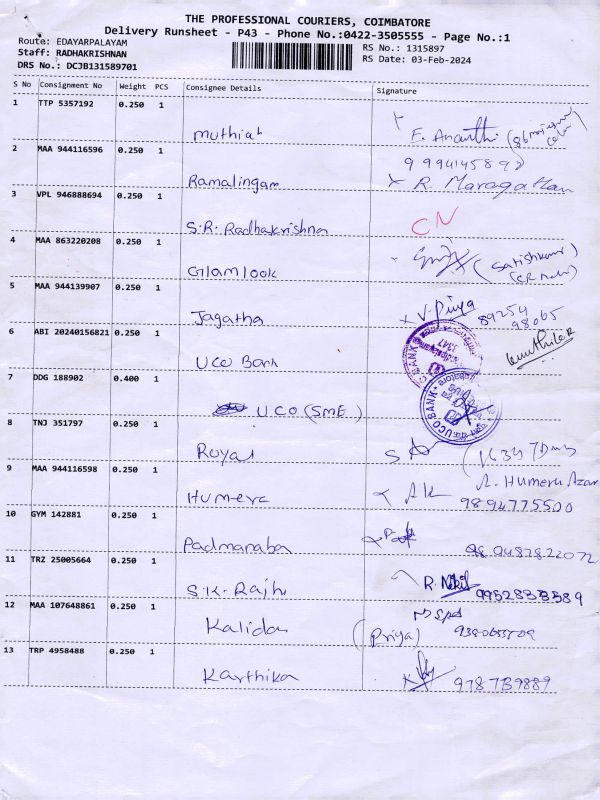 THE PROFESSIONAL COURIERS, COIMBATORE
Delivery Runsheet - P43 - Phone No.:0422-3505555 - Page No.:1
Route: EDAYARPALAYAM
Staff: RADHAKRISHNAN
DRS No.: DCJB131589701
RS No.: 1315897
RS Date: 03-Feb-2024
S No Consignment No Weight PCS Consignee Details Signature
1 TTP 5357192 0.250 1
muthiah E. Ananthi
2 MAA 944116596 0.250 1
Ramalingam R. Maragathan
3 VPL 946888694 0.250 1
S.R. Radhakrishna CN
4 MAA 863220208 0.250 1
Glamlook (Satishkumar)
5 MAA 944139907 0.250 1
Jagatha V. Priya 89254
98065
6 ABI 20240156821 0.250 1
UCO Bank
7 DDG 188902 0.400 1
UCO (SME)
UCO BANK
8 TNJ 351797 0.250 1
Royal
9 MAA 944116598 0.250 1
A. Humera Azam
Humera AK 9894775500
10 GYM 142881 0.250 1
Padmanaba
11 TRZ 25005664 0.250 1
S.K. Raju R. Nikil
12 MAA 107648861 0.250 1
Kalidas (Priya)
13 TRP 4958488 0.250 1
Karthika 978739889